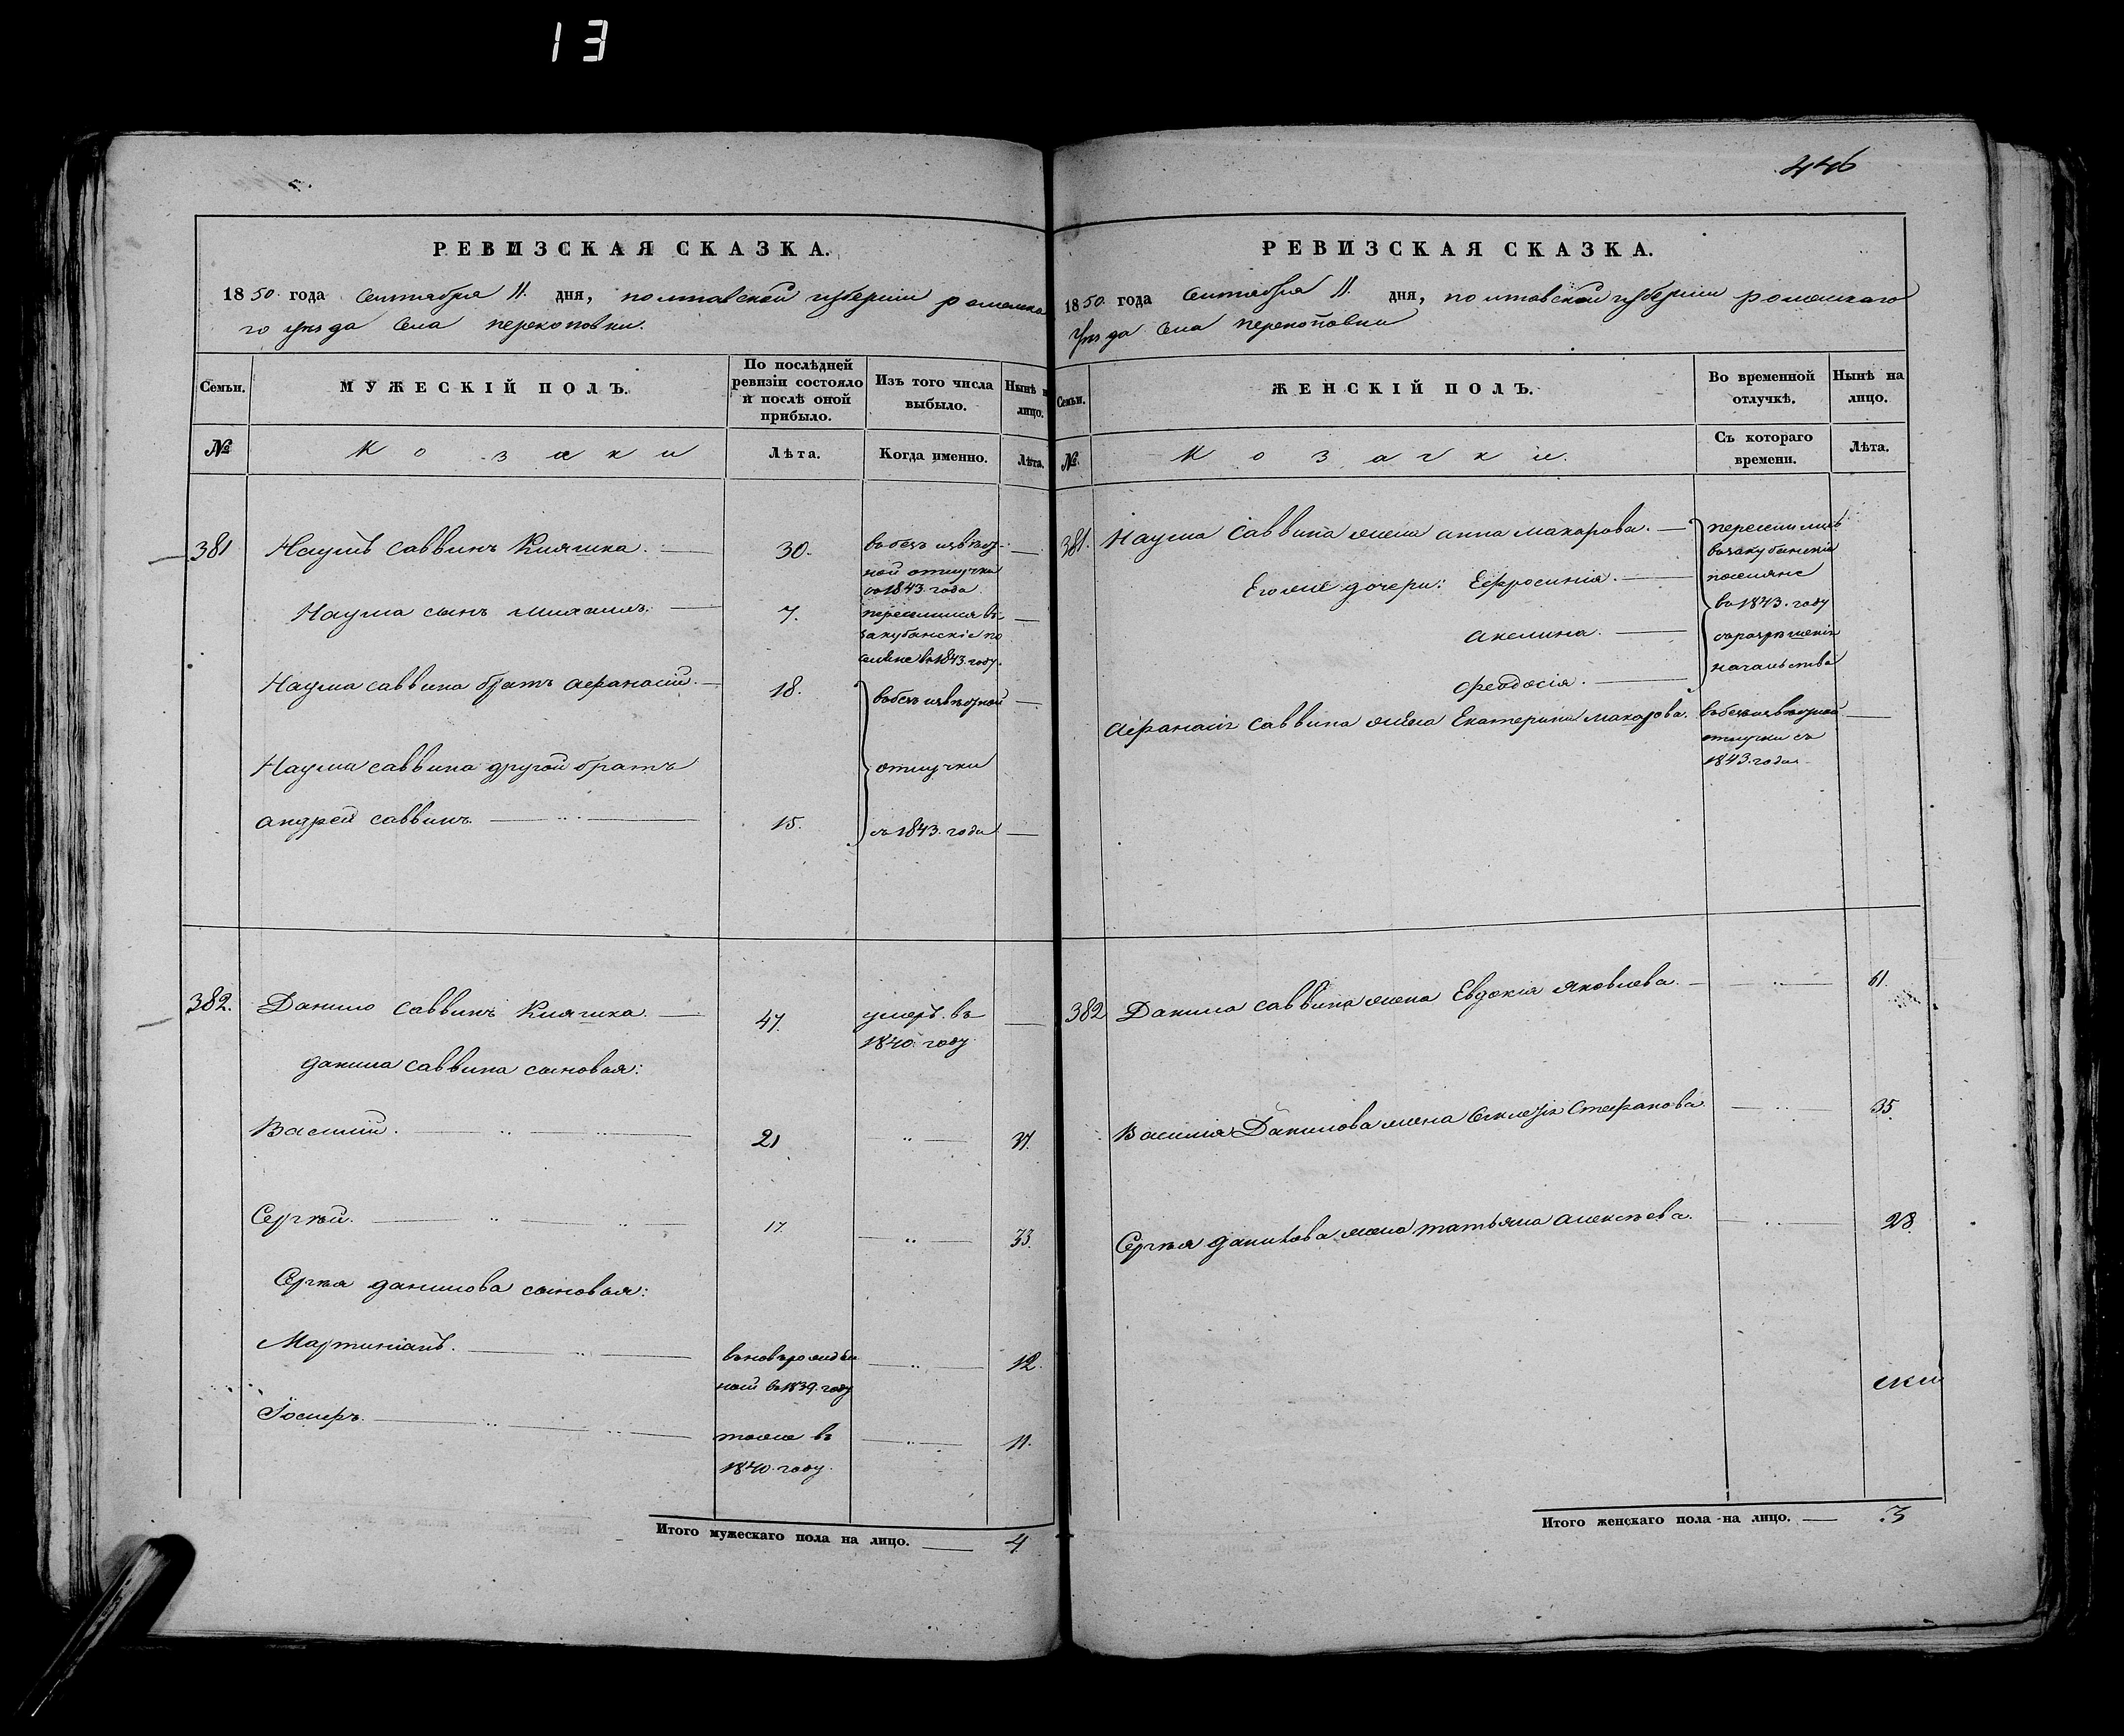 13
446
РЕВИЗСКАЯ СКАЗКА.
1850 года Сентября 11. дня, полтавской губерніи роменска
го уезда села перекоповки.
Семьи.
МУЖЕСКІЙ ПОЛЪ.
По послѣдней
ревизіи состояло
и послѣ оной
прибыло.
Изъ того числа
выбыло.
Нынѣ н
лицо.
№
Козаки
Лѣта.
Когда именно.
Лѣта.
381 Наумъ Саввинъ Кияшка. 30. въ безъизвѣст-
ной отлучки
съ 1843. года
Наума сынъ Михаилъ. 7. переселился въ
закубанскіе по
селяне въ 1843. году.
Наума саввина братъ Афанасій. 18. въ безъизвѣстной
Наума саввина другой братъ отлучки
андрей саввинъ. 15. съ 1843. года
382. Данило Саввинъ Кияшка. 47. умеръ. въ
1840. году
данила саввина сыновья:
Василій. 21 37.
Сергѣй. 17. 33.
Сергѣя данилова сыновья:
Мартиніанъ. вновьрожден 12.
ной въ 1839. году
Іосифъ. тоже въ 11.
1840. году.
Итого мужескаго пола на лицо. 4
РЕВИЗСКАЯ СКАЗКА.
1850 года Сентября 11. дня, полтавской губерніи роменскаго
уезда села перекоповки
Семьи.
ЖЕНСКІЙ ПОЛЪ.
Во временной
отлучкѣ.
Нынѣ на
лицо.
№
Козачки.
Съ котораго
времени.
Лѣта.
381. Наума Саввина жена анна макарова. переселились
въ закубанскіе
Его же дочери: Ефросинія. поселяне
въ 1843. году
акелина. съ разрѣшенія
начальства
феодосія.
Афанасія Саввина жена Екатерина макарова. въ безъизвѣстной
отлучки съ
1843. года
382 Данила Саввина жена Евдокія Яковлева. 61.
Василія Данилова жена Стефанова. 35.
Сергѣя данилова жена татьяна алексѣева. 28.
ский
Итого женскаго пола на лицо. 3